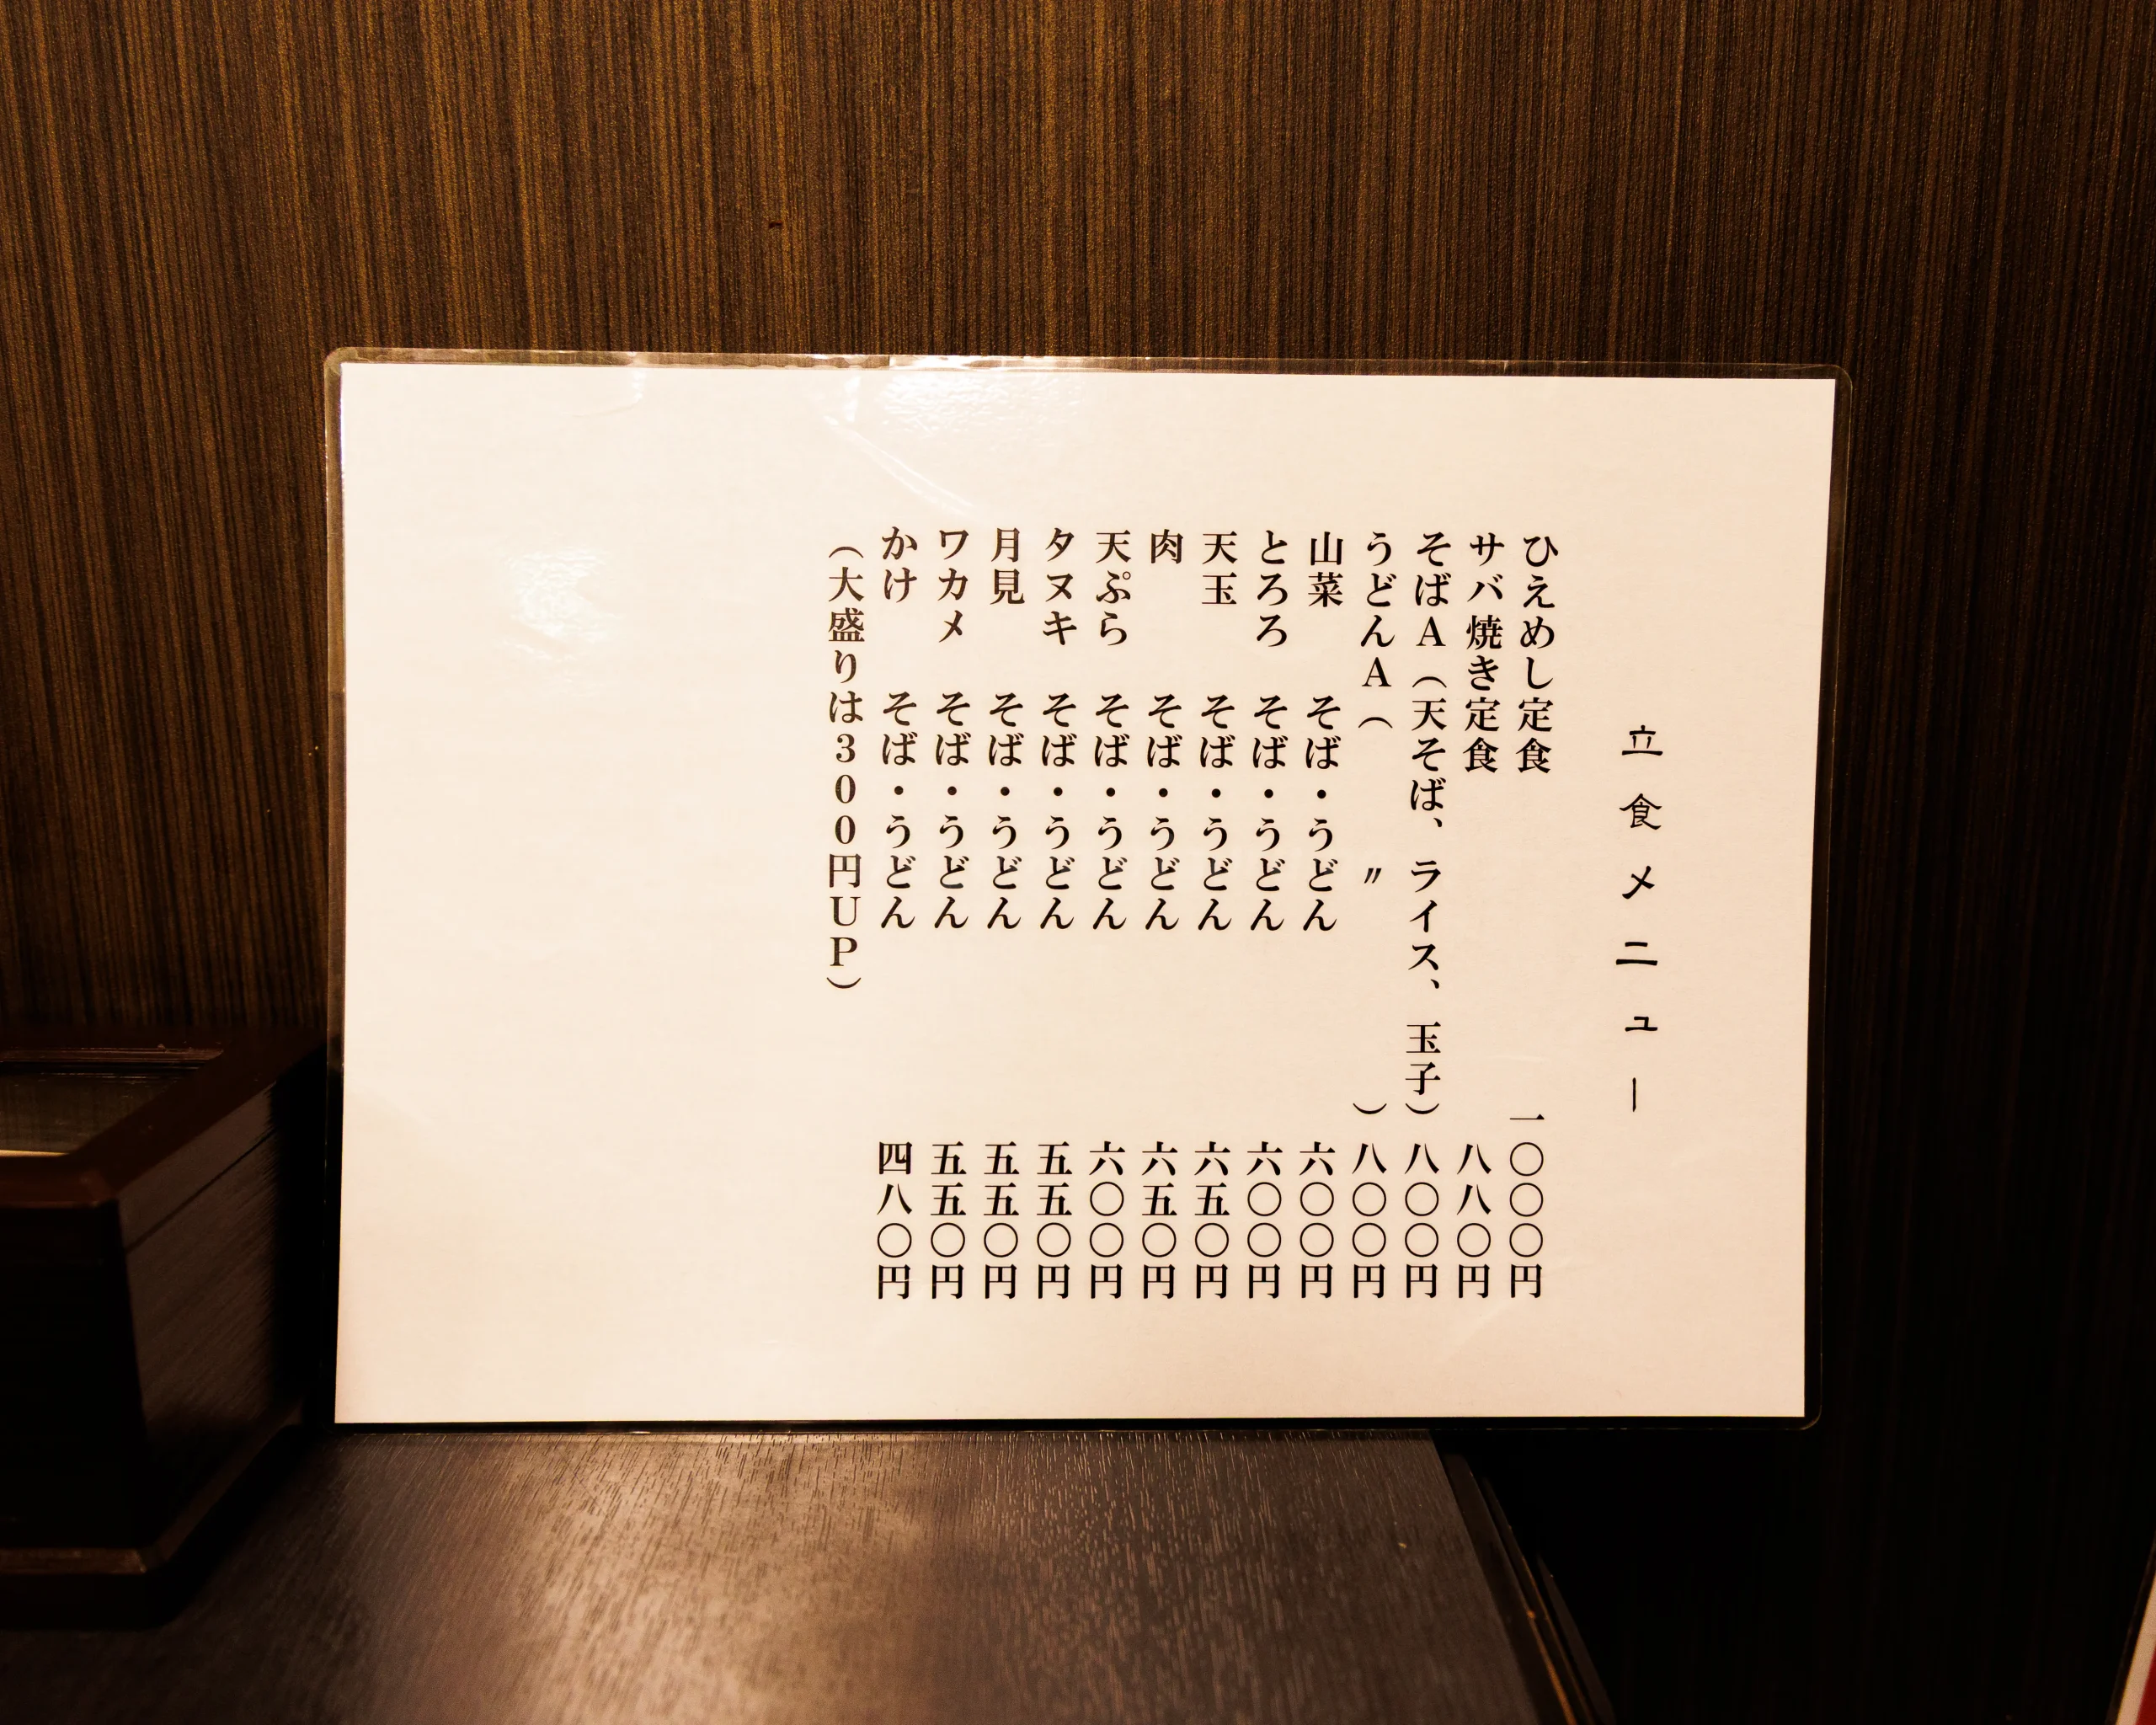 立食メニュー
ひえめし定食 一〇〇〇円
サバ焼き定食 八八〇円
そばA（天そば、ライス、玉子） 八〇〇円
うどんA（ 〃 ） 八〇〇円
山菜 そば・うどん 六〇〇円
とろろ そば・うどん 六〇〇円
天玉 そば・うどん 六五〇円
肉 そば・うどん 六五〇円
天ぷら そば・うどん 六〇〇円
タヌキ そば・うどん 五五〇円
月見 そば・うどん 五五〇円
ワカメ そば・うどん 五五〇円
かけ そば・うどん 四八〇円
（大盛りは300円UP）